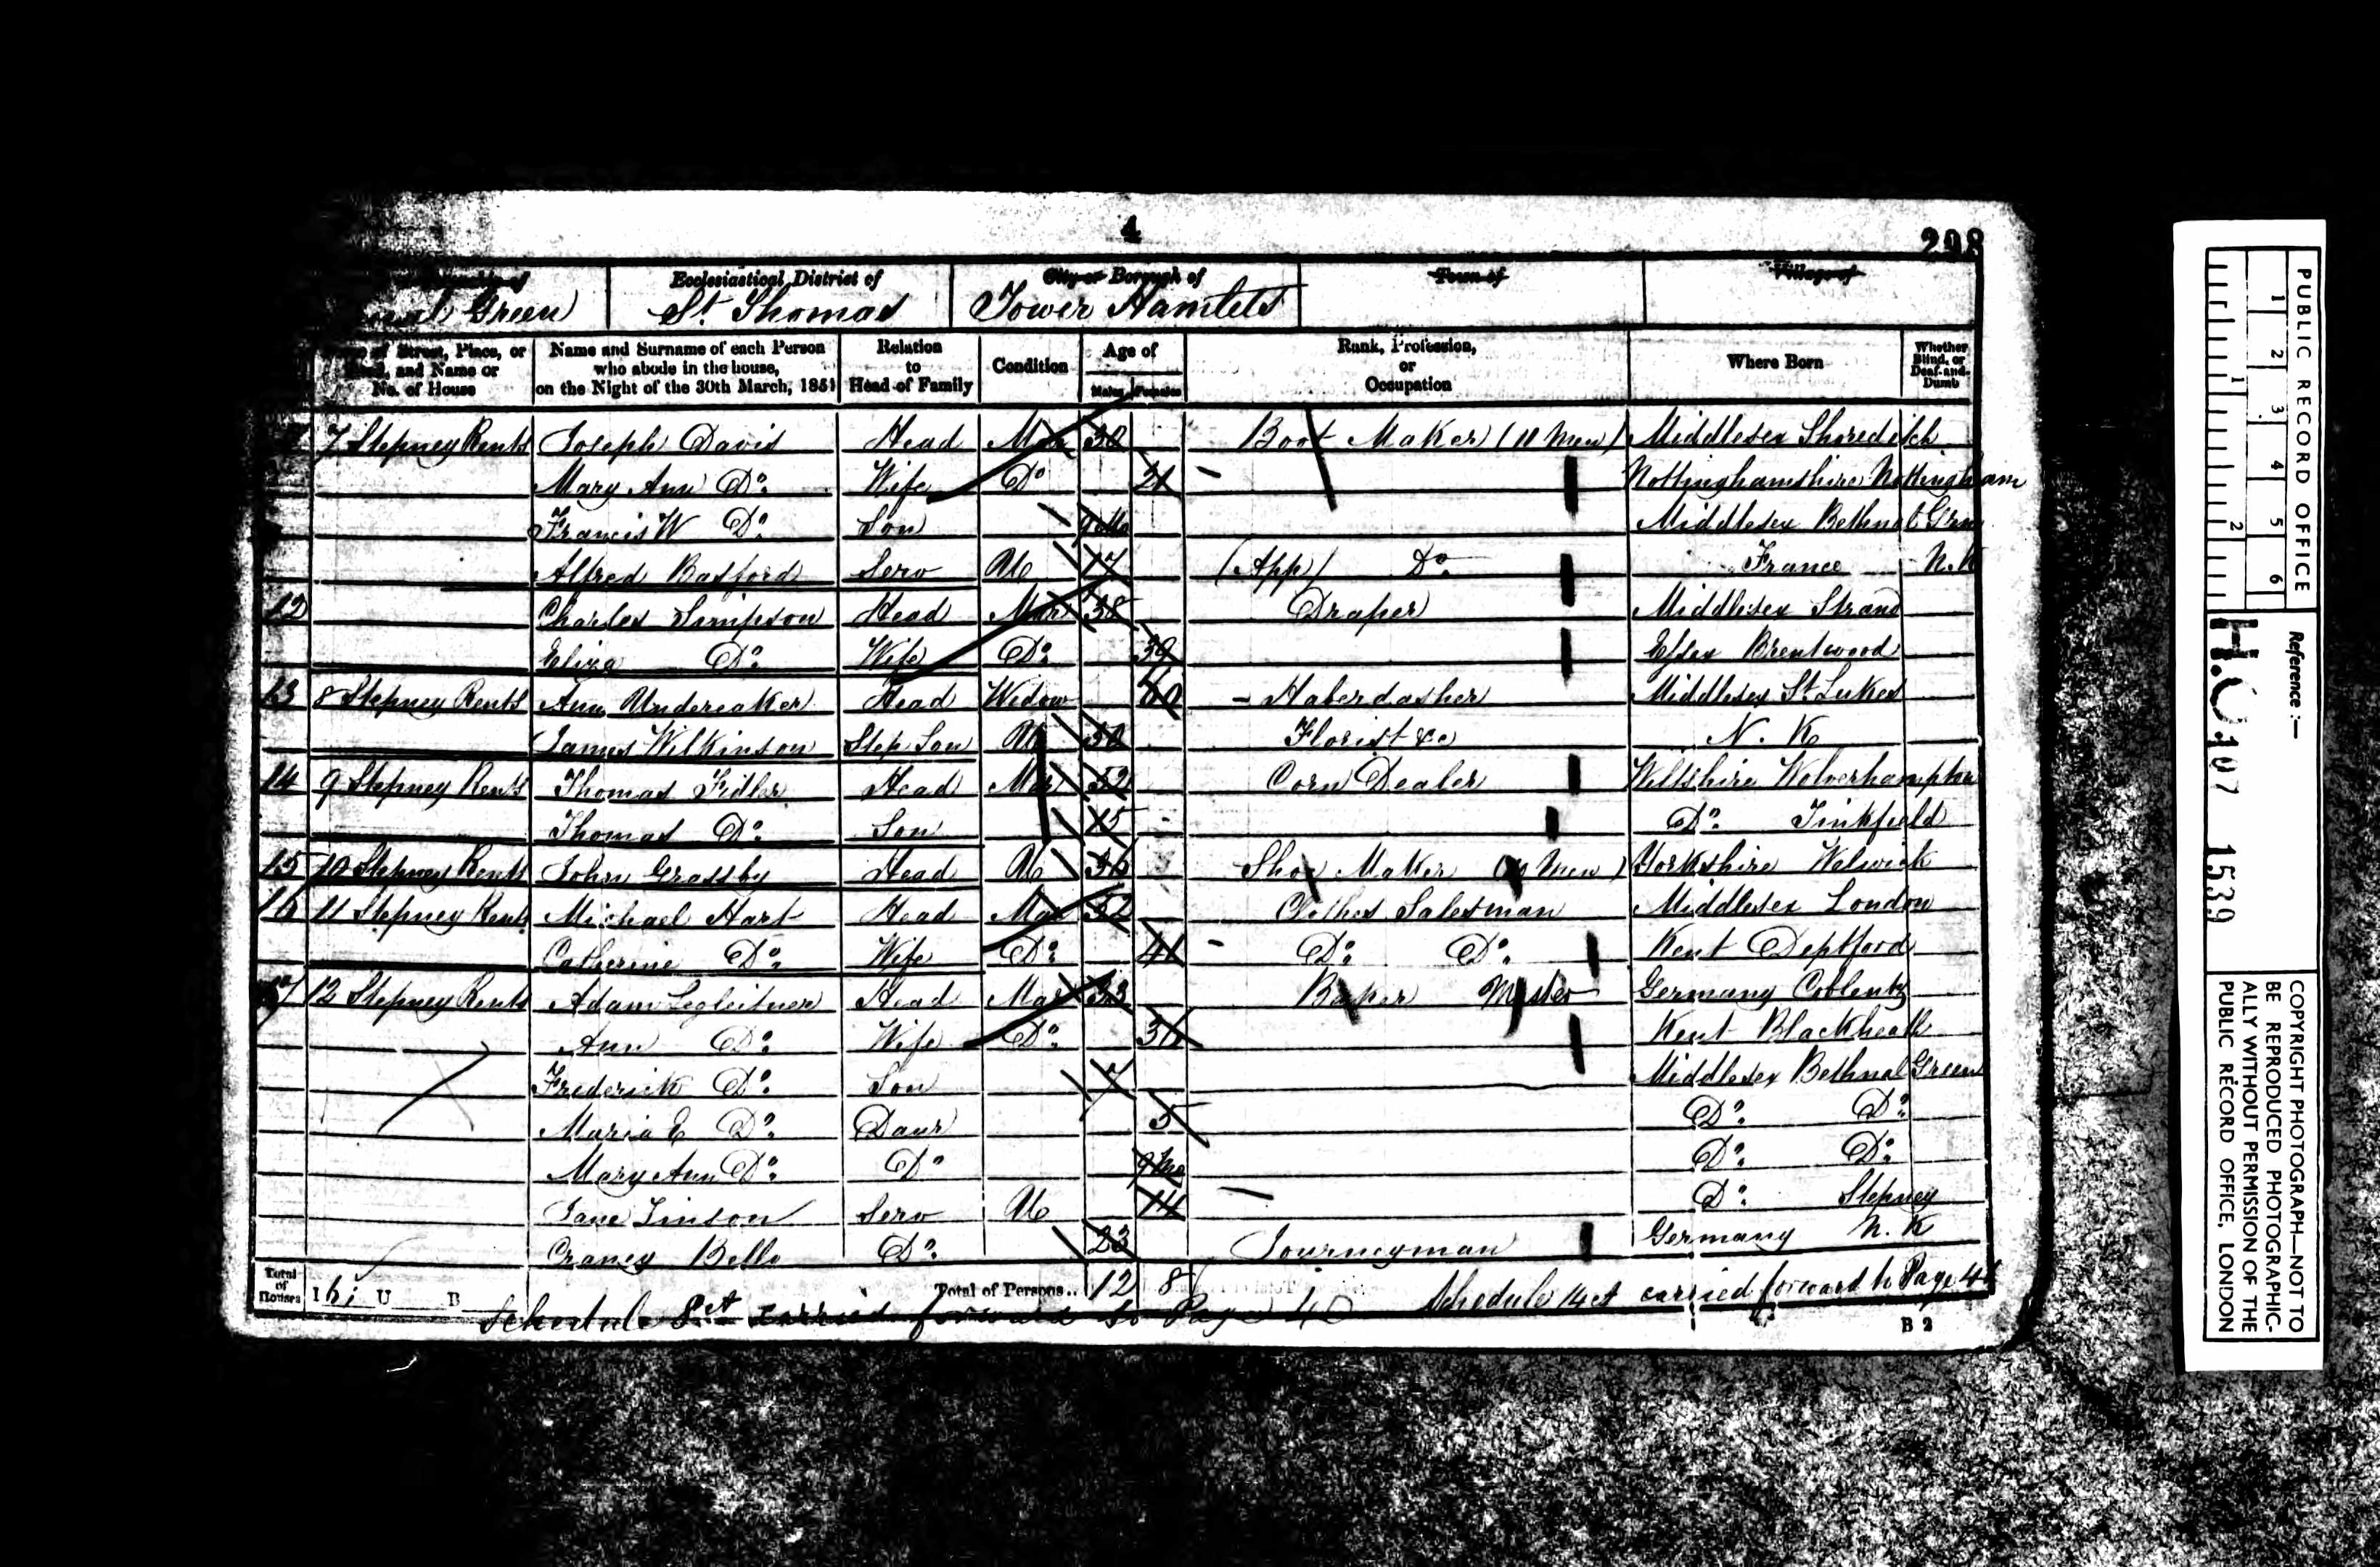 4
298
Ecclesiastical District of
City or Borough of
Town of
Village of
Green
St. Thomas
Tower Hamlets
of Street, Place, or
and Name or
No. of House
Name and Surname of each Person
who abode in the house,
on the Night of the 30th March, 1851
Relation
to
Head of Family
Condition
Age of
Males Females
Rank, Profession,
or
Occupation
Where Born
Whether
Blind, or
Deaf-and-
Dumb
7 Stepney Rents Joseph Davis Head Mar 30 Boot Maker (11 Men) Middlesex Shoreditch
Mary Ann Do. Wife Do 21 Nottinghamshire Nottingham
Francis W Do. Son 9 Mo Middlesex Bethnal Grn
Alfred Basford Serv U 17 (App) Do. France N.K
12 Charles Simpson Head Mar 38 Draper Middlesex Strand
Eliza Do. Wife Do. 39 Essex Brentwood
13 8 Stepney Rents Ann Head Widow 60 Haberdasher Middlesex St. Lukes
James Wilkinson Step Son U 30 Florist &c N. K
14 9 Stepney Rents Thomas Fidler Head Mar 52 Corn Dealer Wiltshire Wolverhampton
Thomas Do. Son 15 Do. Tinkfield
15 10 Stepney Rents John Grassby Head U 36 Shoe Maker Men) Yorkshire Welwick
16 11 Stepney Rents Michael Hart Head Mar 52 Clothes Salesman Middlesex London
Catherine Do. Wife Do. 41 Do. Do. Kent Deptford
17 12 Stepney Rents Adam Legleitner Head Mar 33 Baker Master Germany Coblentz
Ann Do. Wife Do. 31 Kent Blackheath
Frederick Do. Son 7 Middlesex Bethnal Green
Maria E Do. Daur 5 Do. Do.
Mary Ann Do. Do 9 Mo Do. Do.
Jane Tinson Serv U 14 Do. Stepney
Do. 23 Journeyman Germany N. K
Total
of
Houses
1 6 U B Total of Persons.. 12 8
Schedule carried forward to Page 40 Schedule 14 carried forward to Page
B 2
PUBLIC RECORD OFFICE
1 2 3 4 5 6
1 2
Reference :—
H.O.107 1539
COPYRIGHT PHOTOGRAPH—NOT TO
BE REPRODUCED PHOTOGRAPHIC-
ALLY WITHOUT PERMISSION OF THE
PUBLIC RECORD OFFICE, LONDON